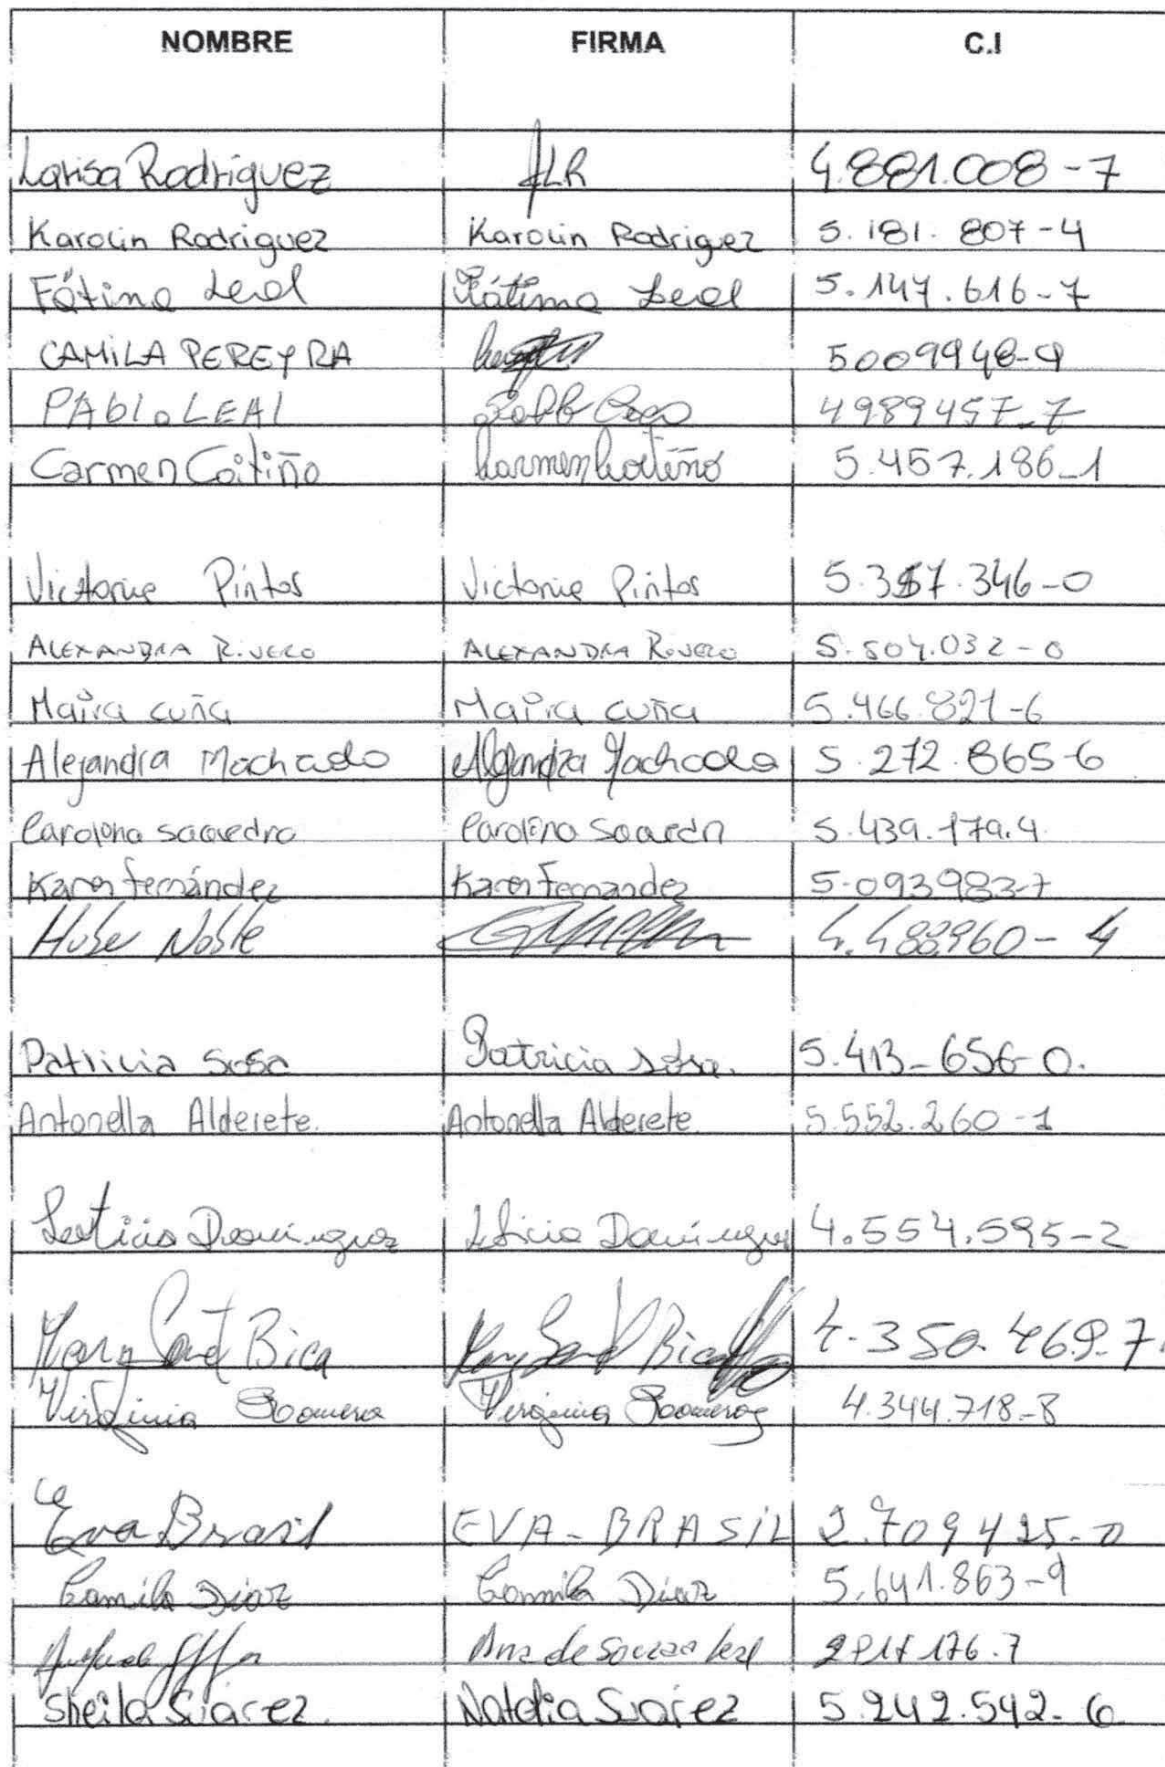 NOMBRE FIRMA C.I
Larisa Rodriguez LR 4.881.008-7
Karolin Rodriguez Karolin Rodriguez 5.181.807-4
Fátima Leal Fátima Leal 5.147.616-7
CAMILA PEREYRA 5009948-9
PABLO LEAL 4989457-7
Carmen Coitiño Carmen Coitiño 5.457.186-1
Victoria Pintos Victoria Pintos 5.357.346-0
ALEXANDRA RiVERO ALEXANDRA RiVERO 5.504.032-0
Maira cuña Maira cuña 5.466.821-6
Alejandra Machado Alejandra Machado 5.272.865-6
Carolona saavedra Carolina 5.439.179.4
Karen fernández Karen Fernandez 5.093983-7
Noble 4.488960-4
Patricia Sosa Patricia Sosa. 5.413-656-0.
Antonella Alderete. Antonella Alderete 5.552.260-1
Leticia Dominguez Leticia Dominguez 4.554.595-2
Mary Bica Bica 4.350.469.7.
Virginia Romero Virginia 4.344.718-8
Eva Brasil EVA-BRASIL 2.709425-0
Camila Diaz Camila Diaz 5.641.863-9
Ana de Souza Leal 176.7
Sheila Suarez. Natalia Suarez 5.242.542-6.